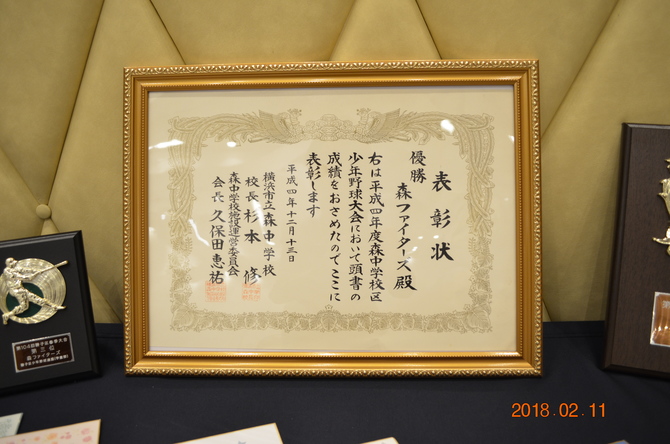 表彰状
優勝
森ファイターズ殿
右は平成四年度森中学校区
少年野球大会において頭書の
成績をおさめたのでここに
表彰します
平成四年十二月十三日
横浜市立森中学校
校長杉本修
森中学校施設運営委員会
会長久保田恵祐
第三位
森ファイターズ
2018.02.11